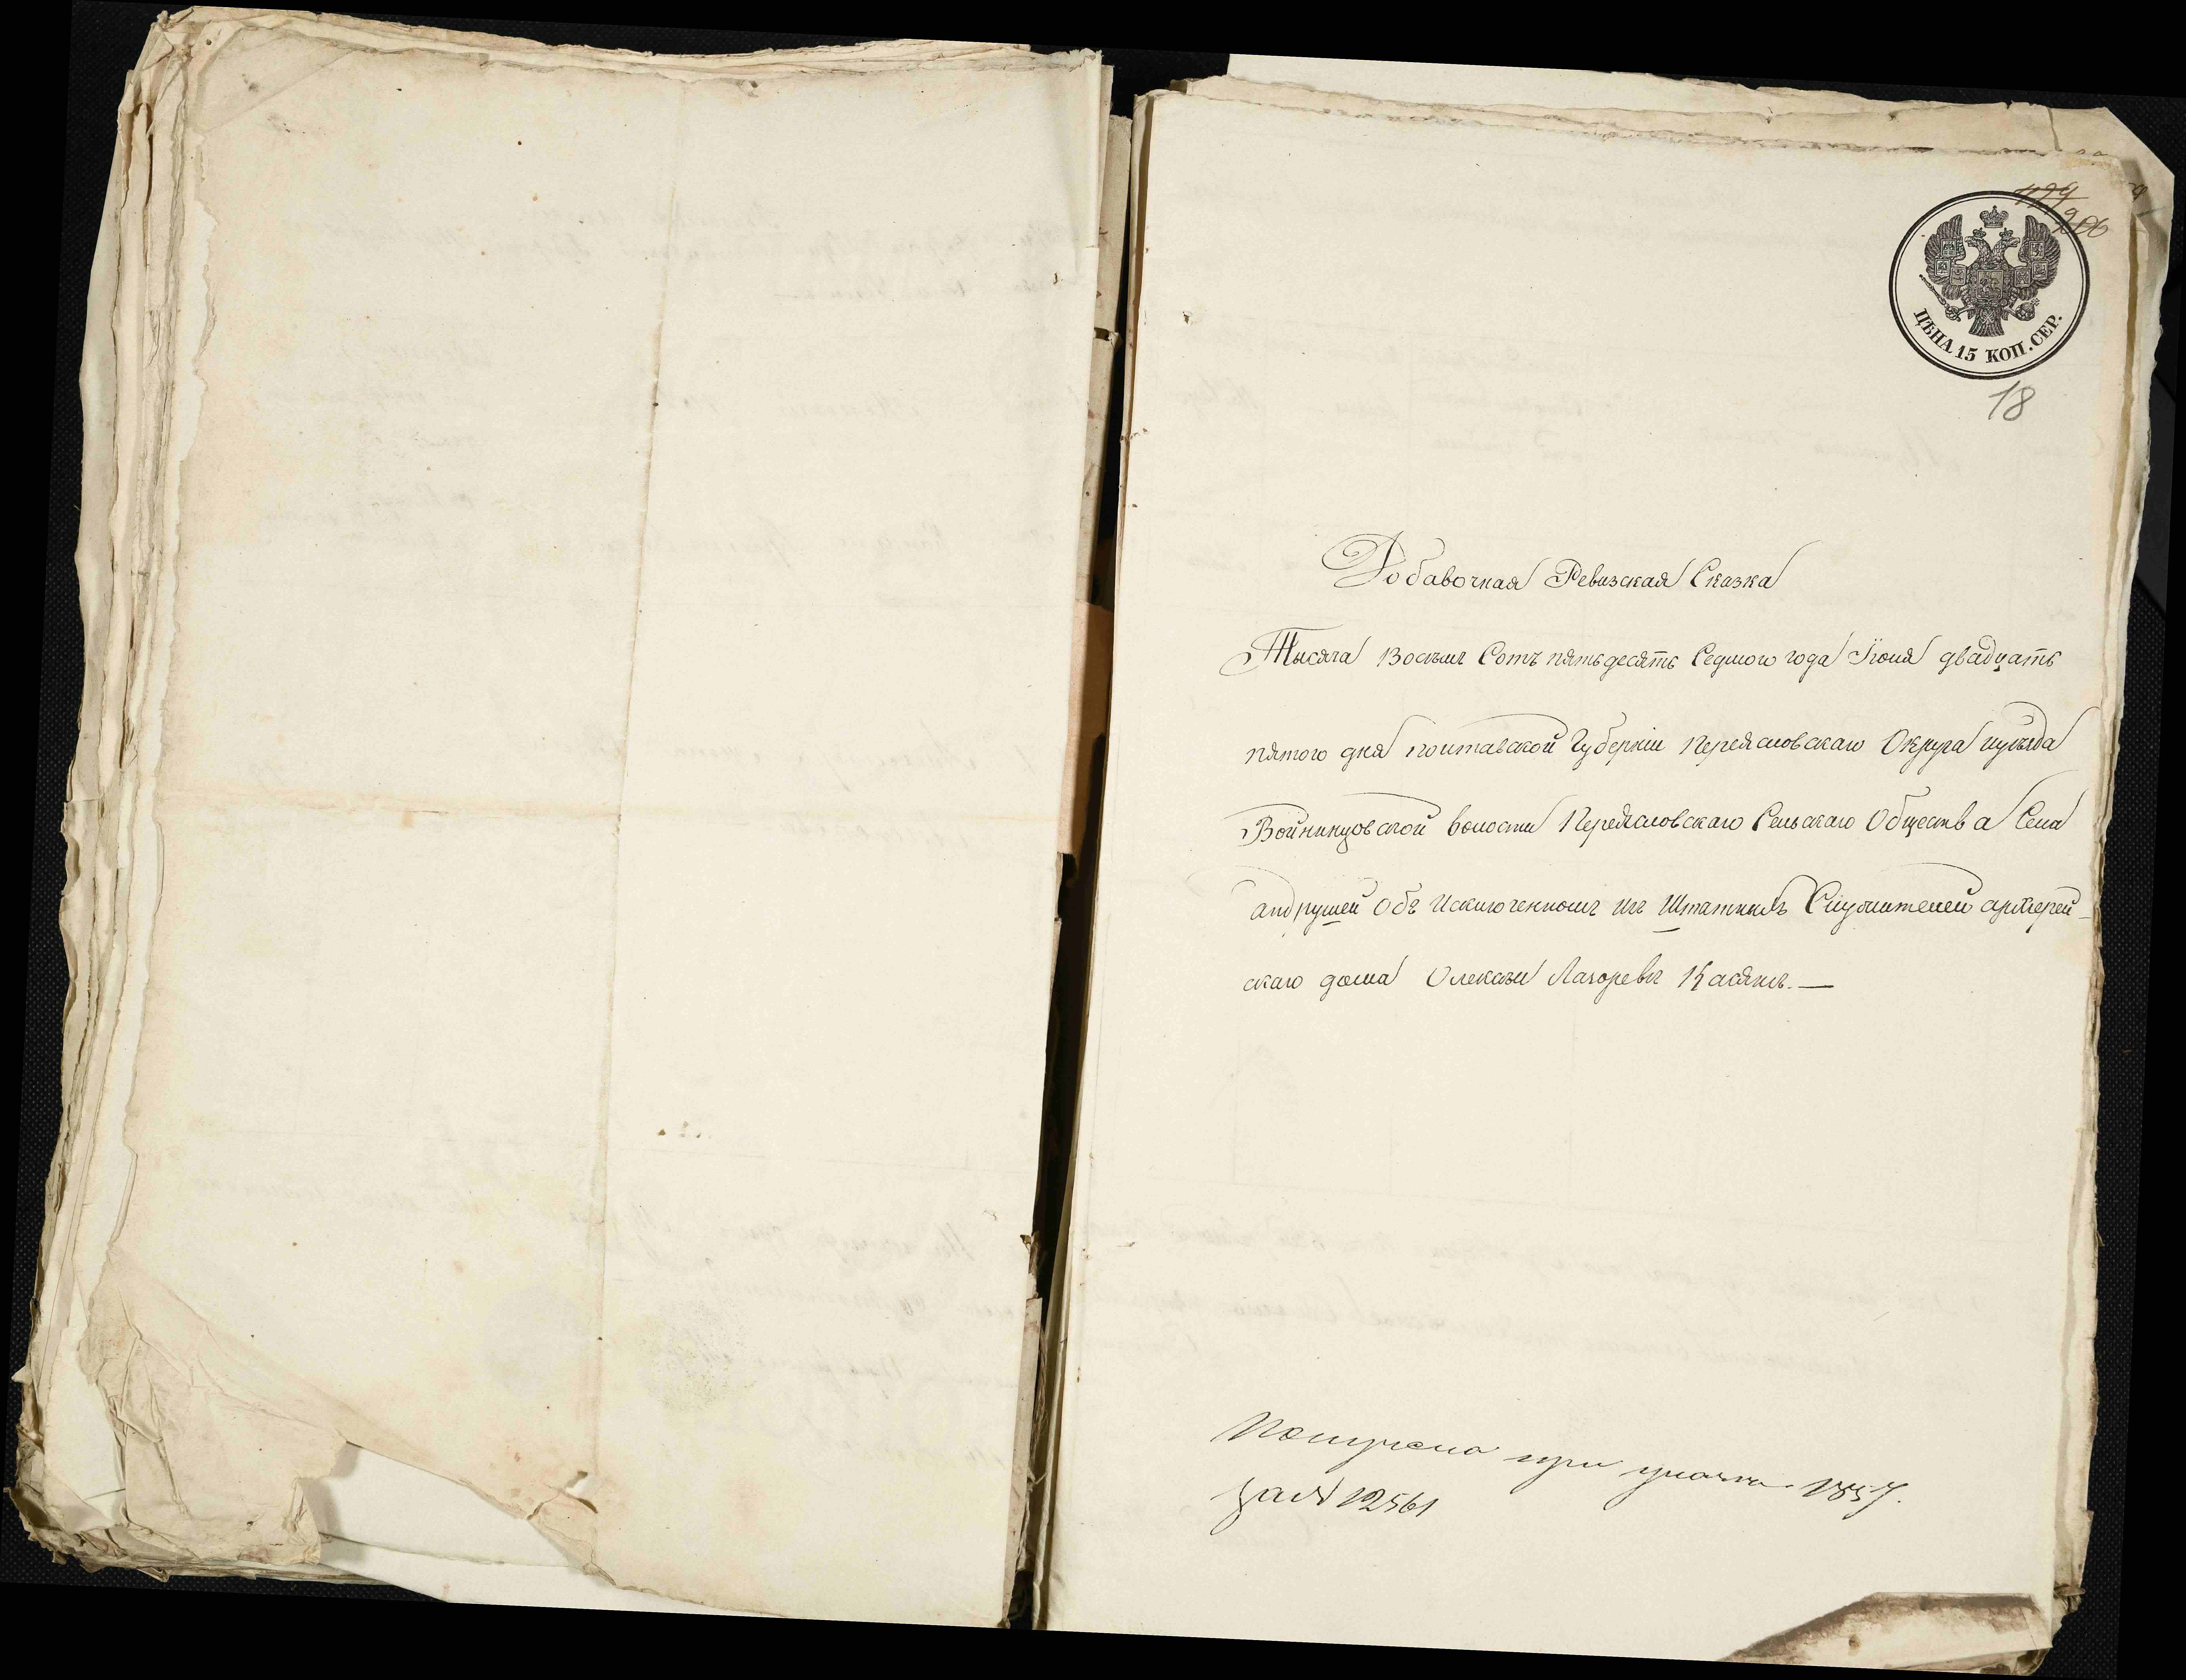 199
206
ЦѢНА 15 КОП. СЕР.
18
Добавочная Ревизская Сказка
Тысяча Восемъ Сотъ пятьдесятъ Седмого года Iюня двадцать
пятого дня полтавской Губернiи Переясловскаго Округа иуезда
Войнинцовской волости Переясловскаго Сельскаго Общества Села
андрушей Объ Исключенномъ изъ Штатныхъ Служителей архiерей-
скаго дома Олексѣи Лазоревъ Касянъ.—
Получена при 1857.
за № 12561